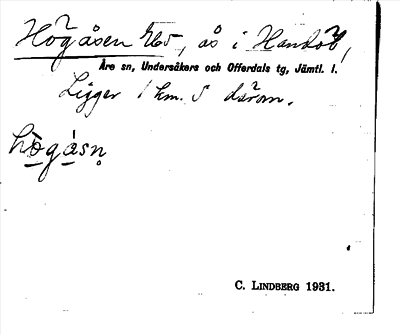 Högåsen, ås i Handöl,
Åre sn, Undersåkers och Offerdals tg, Jämtl. l.
Ligger 1 km. S därom.
högåsn̥
C. LINDBERG 1931.